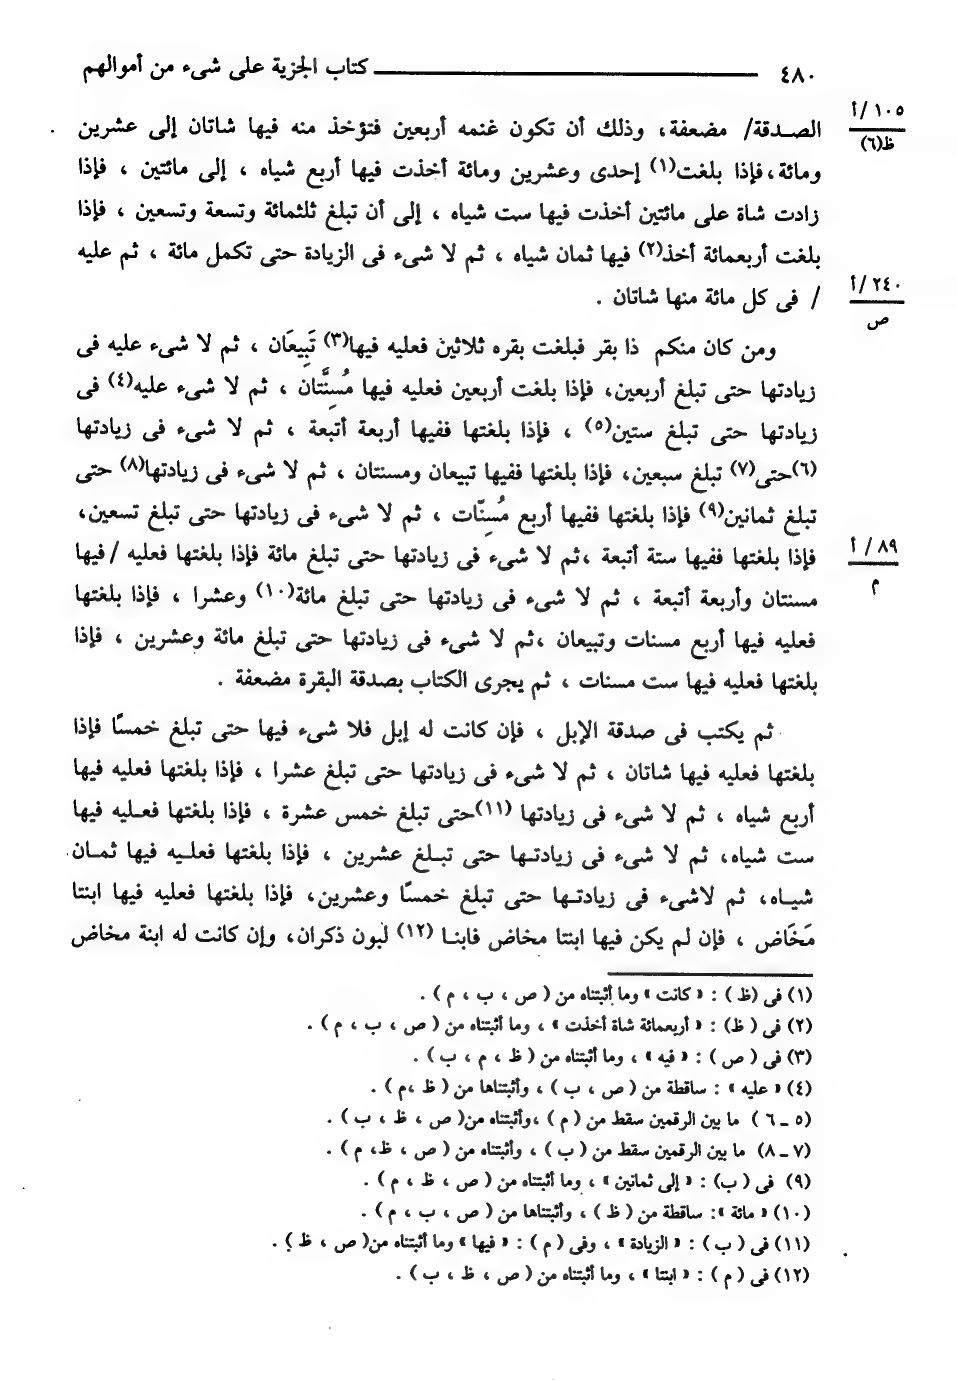 ٤٨٠ كتاب الجزية على شىء من أموالهم
١٠٥/أ
ظ(٦)
الصـدقة/ مضعفة، وذلك أن تكون غنمه أربعين فتؤخذ منه فيها شاتان إلى عشرين
ومائة،فإذا بلغت(١) إحدى وعشرين ومائة أخذت فيها أربع شياه ، إلى مائتين ، فإذا
زادت شاة على مائتين أخذت فيها ست شياه ، إلى أن تبلغ ثلثمائة وتسعة وتسعين ، فإذا
بلغت أربعمائة أخذ(٢) فيها ثمان شياه ، ثم لا شىء فى الزيادة حتى تكمل مائة ، ثم عليه
٢٤٠/أ
ص
/ فى كل مائة منها شاتان .
ومن كان منكم ذا بقر فبلغت بقره ثلاثين فعليه فيها(٣) تَبِيعَان ، ثم لا شىء عليه فى
زيادتها حتى تبلغ أربعين، فإذا بلغت أربعين فعليه فيها مُسِنَّتان ، ثم لا شىء عليه(٤) فى
زيادتها حتى تبلغ ستين(٥) ، فإذا بلغتها ففيها أربعة أتبعة ، ثم لا شىء فى زيادتها
(٦)حتى(٧) تبلغ سبعين، فإذا بلغتها ففيها تبيعان ومسنتان ، ثم لا شىء فى زيادتها(٨) حتى
تبلغ ثمانين(٩) فإذا بلغتها ففيها أربع مُسِنّات ، ثم لا شىء فى زيادتها حتى تبلغ تسعين،
٨٩/ أ
م
فإذا بلغتها ففيها ستة أتبعة ،ثم لا شىء فى زيادتها حتى تبلغ مائة فإذا بلغتها فعليه /فيها
مسنتان وأربعة أتبعة ، ثم لا شىء فى زيادتها حتى تبلغ مائة(١٠) وعشرا ، فإذا بلغتها
فعليه فيها أربع مسنات وتبيعان ،ثم لا شىء فى زيادتها حتى تبلغ مائة وعشرين ، فإذا
بلغتها فعليه فيها ست مسنات ، ثم يجرى الكتاب بصدقة البقرة مضعفة .
ثم يكتب فى صدقة الإبل ، فإن كانت له إبل فلا شىء فيها حتى تبلغ خمسًا فإذا
بلغتها فعليه فيها شاتان ، ثم لا شىء فى زيادتها حتى تبلغ عشرا ، فإذا بلغتها فعليه فيها
أربع شياه ، ثم لا شىء فى زيادتها (١١)حتى تبلغ خمس عشرة ، فإذا بلغتها فعـليه فيها
ست شياه، ثم لا شىء فى زيادتـها حتى تبـلغ عشرين ، فإذا بلغتها فعلـيه فيها ثمـان
شيـاه، ثم لاشىء فى زيادتـها حتى تبلغ خمسًا وعشرين، فإذا بلغتها فعليه فيها ابنتا
مَخَاض ، فإن لم يكن فيها ابنتا مخاض فابنـا (١٢) لبون ذكران، وإن كانت له ابنة مخاض
(١) فى (ظ) : « كانت » وما أثبتناه من ( ص ، ب ، م ) .
(٢) فى ( ظ) : « أربعمائة شاة أخذت » ، وما أثبتناه من ( ص ، ب ، م ) .
(٣) فى ( ص ) : « فيه » ، وما أثبتناه من ( ظ ، م ، ب ) .
(٤) « عليه » : ساقطة من ( ص ، ب ) ، وأثبتناها من ( ظ ،م ) .
(٥ ـ ٦ ) ما بين الرقمين سقط من ( م ) ،وأثبتناه من( ص ، ظ ، ب ) .
(٧ ـ ٨) ما بين الرقمين سقط من ( ب ) ، وأثبتناه من ( ص ، ظ، م ) .
(٩) فى ( ب) : « إلى ثمانين » ، وما أثبتناه من ( ص ، ظ ، م ) .
(١٠) « مائة »: ساقطة من ( ظ ) ، وأثبتناها من ( ص ، ب ، م ) .
(١١) فى ( ب ) : « الزيادة » ، وفى ( م ) : « فيها » وما أثبتناه من( ص ، ظ ) .
(١٢) فى ( م ) : « ابنتا » ، وما أثبتناه من ( ص ، ظ ، ب ) .